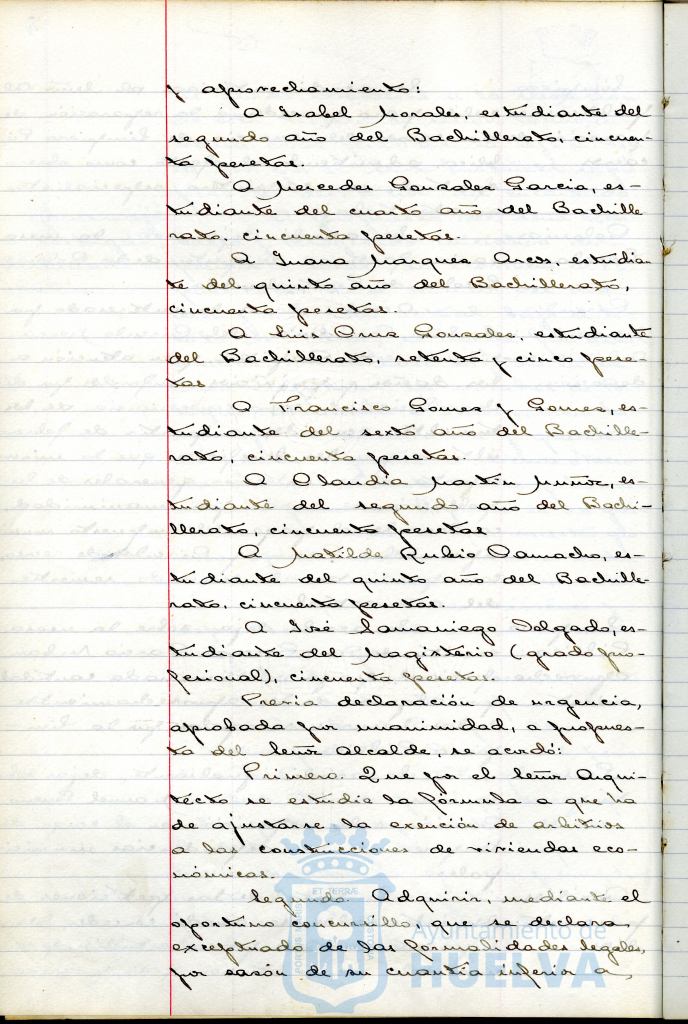 y aprovechamiento:
A Isabel Morales, estudiante del
segundo año del Bachillerato, cincuen-
ta pesetas.
A Mercedes Gonzalez Garcia, es-
tudiante del cuarto año del Bachille-
rato, cincuenta pesetas.
A Juana Marquez Arcos, estudian-
te del quinto año del Bachillerato,
cincuenta pesetas.
A Luis Cruz Gonzalez, estudiante
del Bachillerato, setenta y cinco pese-
tas
A Francisco Gomez y Gomez, es-
tudiante del sexto año del Bachille-
rato, cincuenta pesetas.
A Claudia Martin Muñoz, es-
tudiante del segundo año del Bachi-
llerato, cincuenta pesetas
A Matilde Rubio Camacho, es-
tudiante del quinto año del Bachille-
rato, cincuenta pesetas.
A José Samaniego Delgado, es-
tudiante del Magisterio (grado pro-
fesional), cincuenta pesetas.
Previa declaración de urgencia,
aprobada por unanimidad, a propues-
ta del Señor Alcalde, se acordó:
Primero. Que por el Señor Arqui-
tecto se estudie la fórmula a que ha
de ajustarse la exención de arbitrios
a las construcciones de viviendas eco-
nómicas.
Segundo. Adquirir, mediante el
oportuno concursillo, que se declara
exceptuado de las formalidades legales,
por razón de su cuantía inferior a
Ayuntamiento de
HUELVA